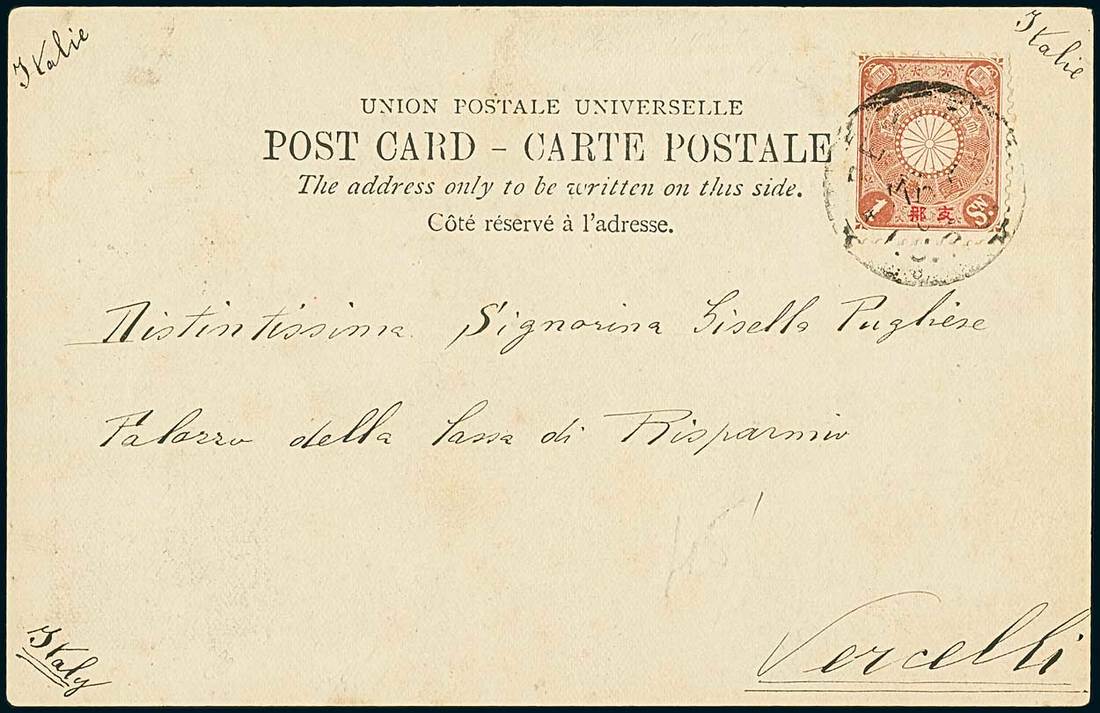 Italie
Italie
UNION POSTALE UNIVERSELLE
POST CARD – CARTE POSTALE
The address only to be written on this side.
Côté réservé à l'adresse.
1 Sn.
支那
Distintissima Signorina Gisella Pugliese
Palazzo della Cassa di Risparmio
Vercelli
Italy